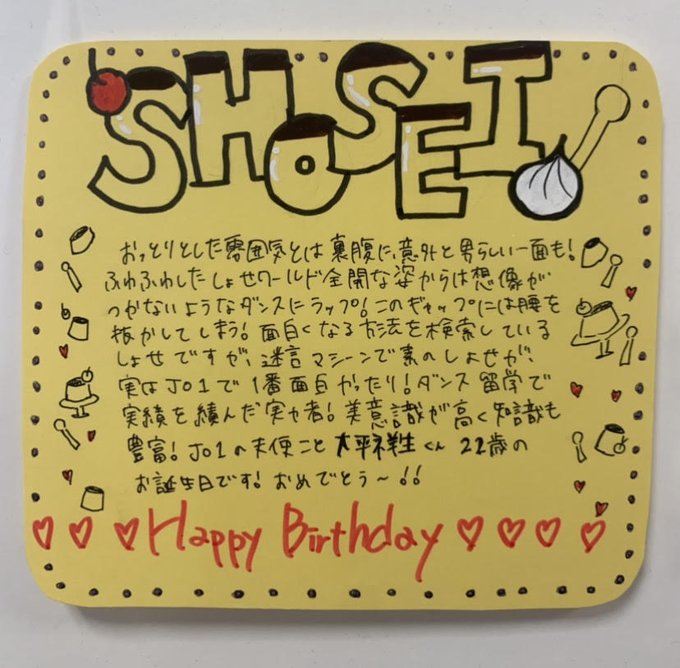 SHOSEI
おっとりとした雰囲気とは裏腹に、意外と男らしい一面も!
ふわふわしたしょせワールド全開な姿からは想像が
つかないようなダンスにラップ!このギャップには腰を
抜かしてしまう!面白くなる方法を検索している
しょせですが、迷言マシーンで素のしょせが、
実はJO1で1番面白かったり!ダンス留学で
実績を積んだ実力者!美意識が高く知識も
豊富!JO1の天使こと大平祥生くん 22歳の
お誕生日です!おめでとう〜!!
Happy Birthday